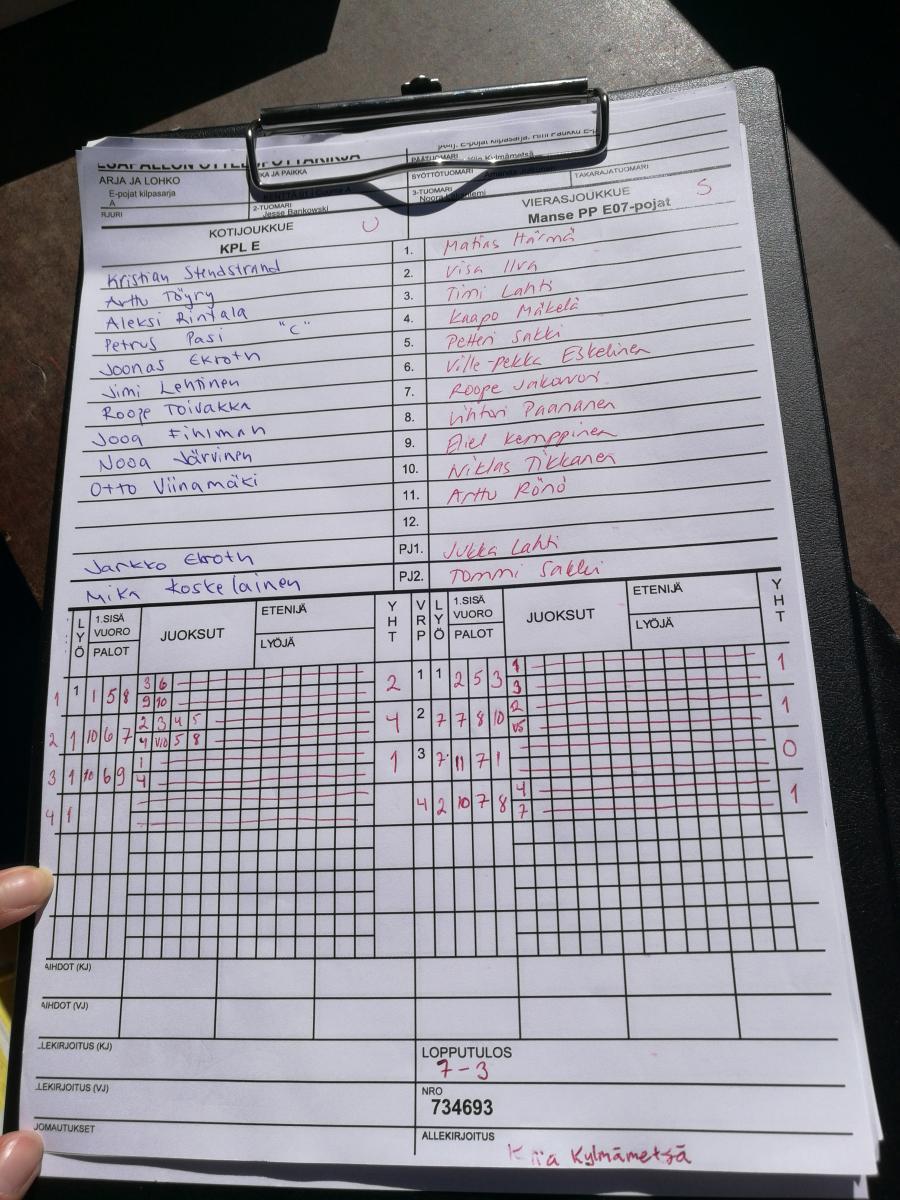 ARJA JA LOHKO
E-pojat kilpasarja
A
RJURI
KA JA PAIKKA
2-TUOMARI
Jesse Bankowski
E-pojat kilpasarja,
PÄÄTUOMARI
Kylmämetsä
SYÖTTÖTUOMARI
TAKARAJATUOMARI
3-TUOMARI
KOTIJOUKKUE U
KPL E
VIERASJOUKKUE S
Manse PP E07-pojat
Kristian Stendstrand 1. Matias Härmä
Arttu Töyry 2. Visa Ilva
Aleksi Rintala 3. Timi Lahti
Petrus Pasi "C" 4. Kaapo Mäkelä
Joonas Ekroth 5. Petteri Sakki
Jimi Lehtinen 6. Ville-Pekka Eskelinen
Roope Toivakka 7. Roope
Jooa Fihlman 8. Vihtori Paananen
Nooa Järvinen 9. Eliel Kemppinen
Otto Viinamäki 10. Niklas Tikkanen
11. Arttu Rönö
12.
Jarkko Ekroth PJ1. Jukka Lahti
Mika Koskelainen PJ2. Tommi Sakki
LYÖ 1.SISÄ VUORO PALOT JUOKSUT ETENIJÄ LYÖJÄ YHT VRP LYÖ 1.SISÄ VUORO PALOT JUOKSUT ETENIJÄ LYÖJÄ YHT
1 1 1 5 8 3 6 2 1 1 2 5 3 1 1
9 10 3
2 1 10 6 7 2 3 4 5 4 2 7 7 8 10 2 1
4 V10 5 8 V5
3 1 10 6 9 1 1 3 7 11 7 1 0
4
4 1 4 2 10 7 8 4 1
7
AIHDOT (KJ)
AIHDOT (VJ)
LEKIRJOITUS (KJ)
LEKIRJOITUS (VJ)
JOMAUTUKSET
LOPPUTULOS
7-3
NRO
734693
ALLEKIRJOITUS
Kiia Kylmämetsä